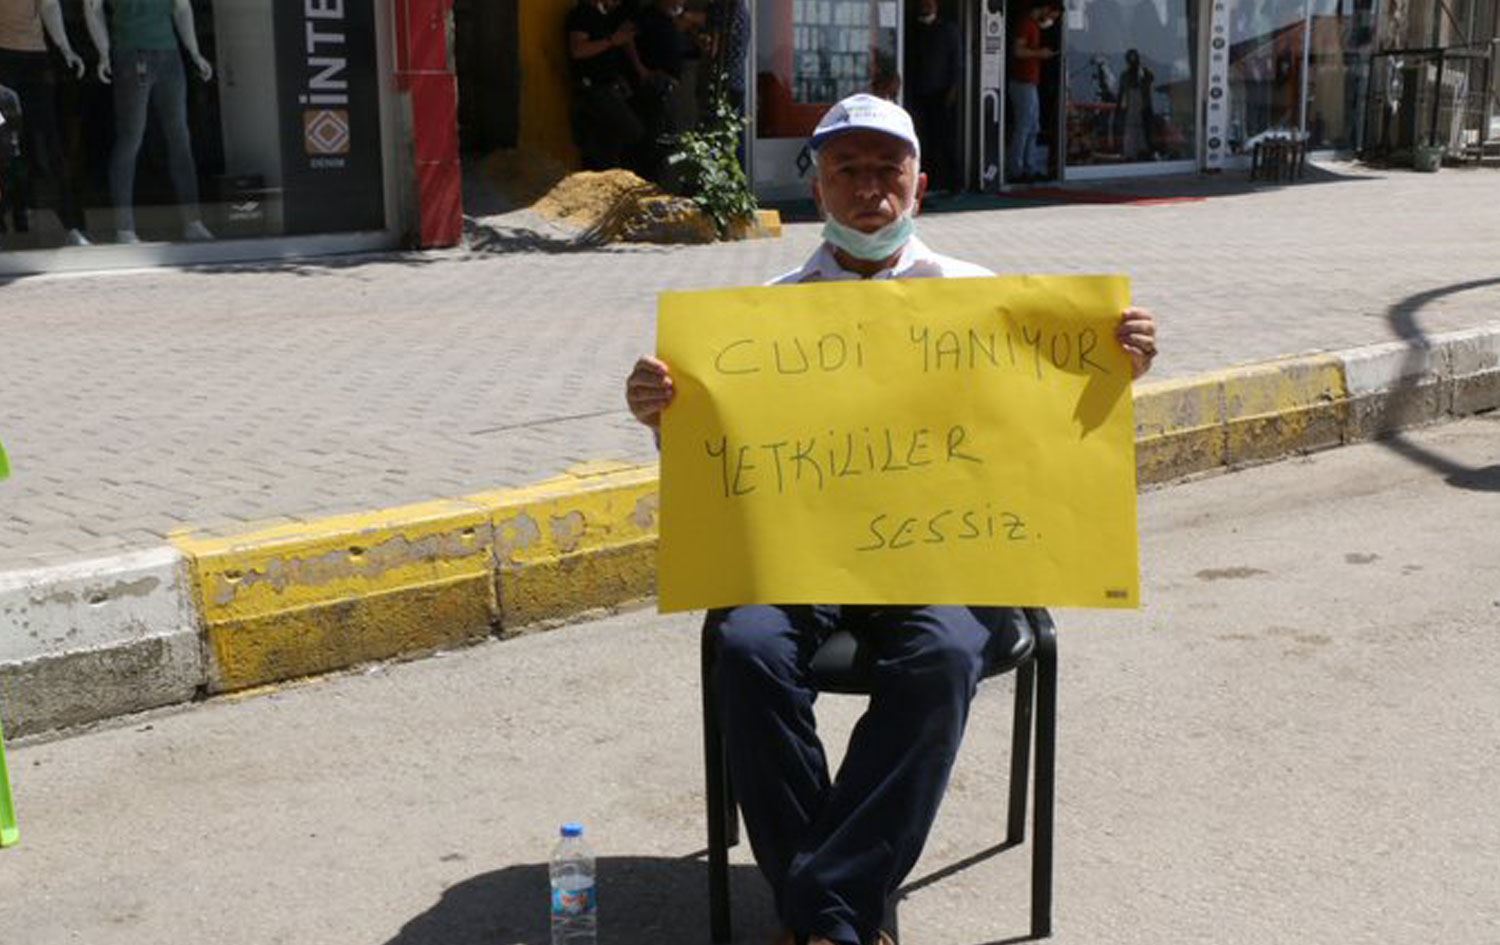 İNTE
DENIM
CUDİ YANIYOR
YETKİLİLER
SESSİZ.